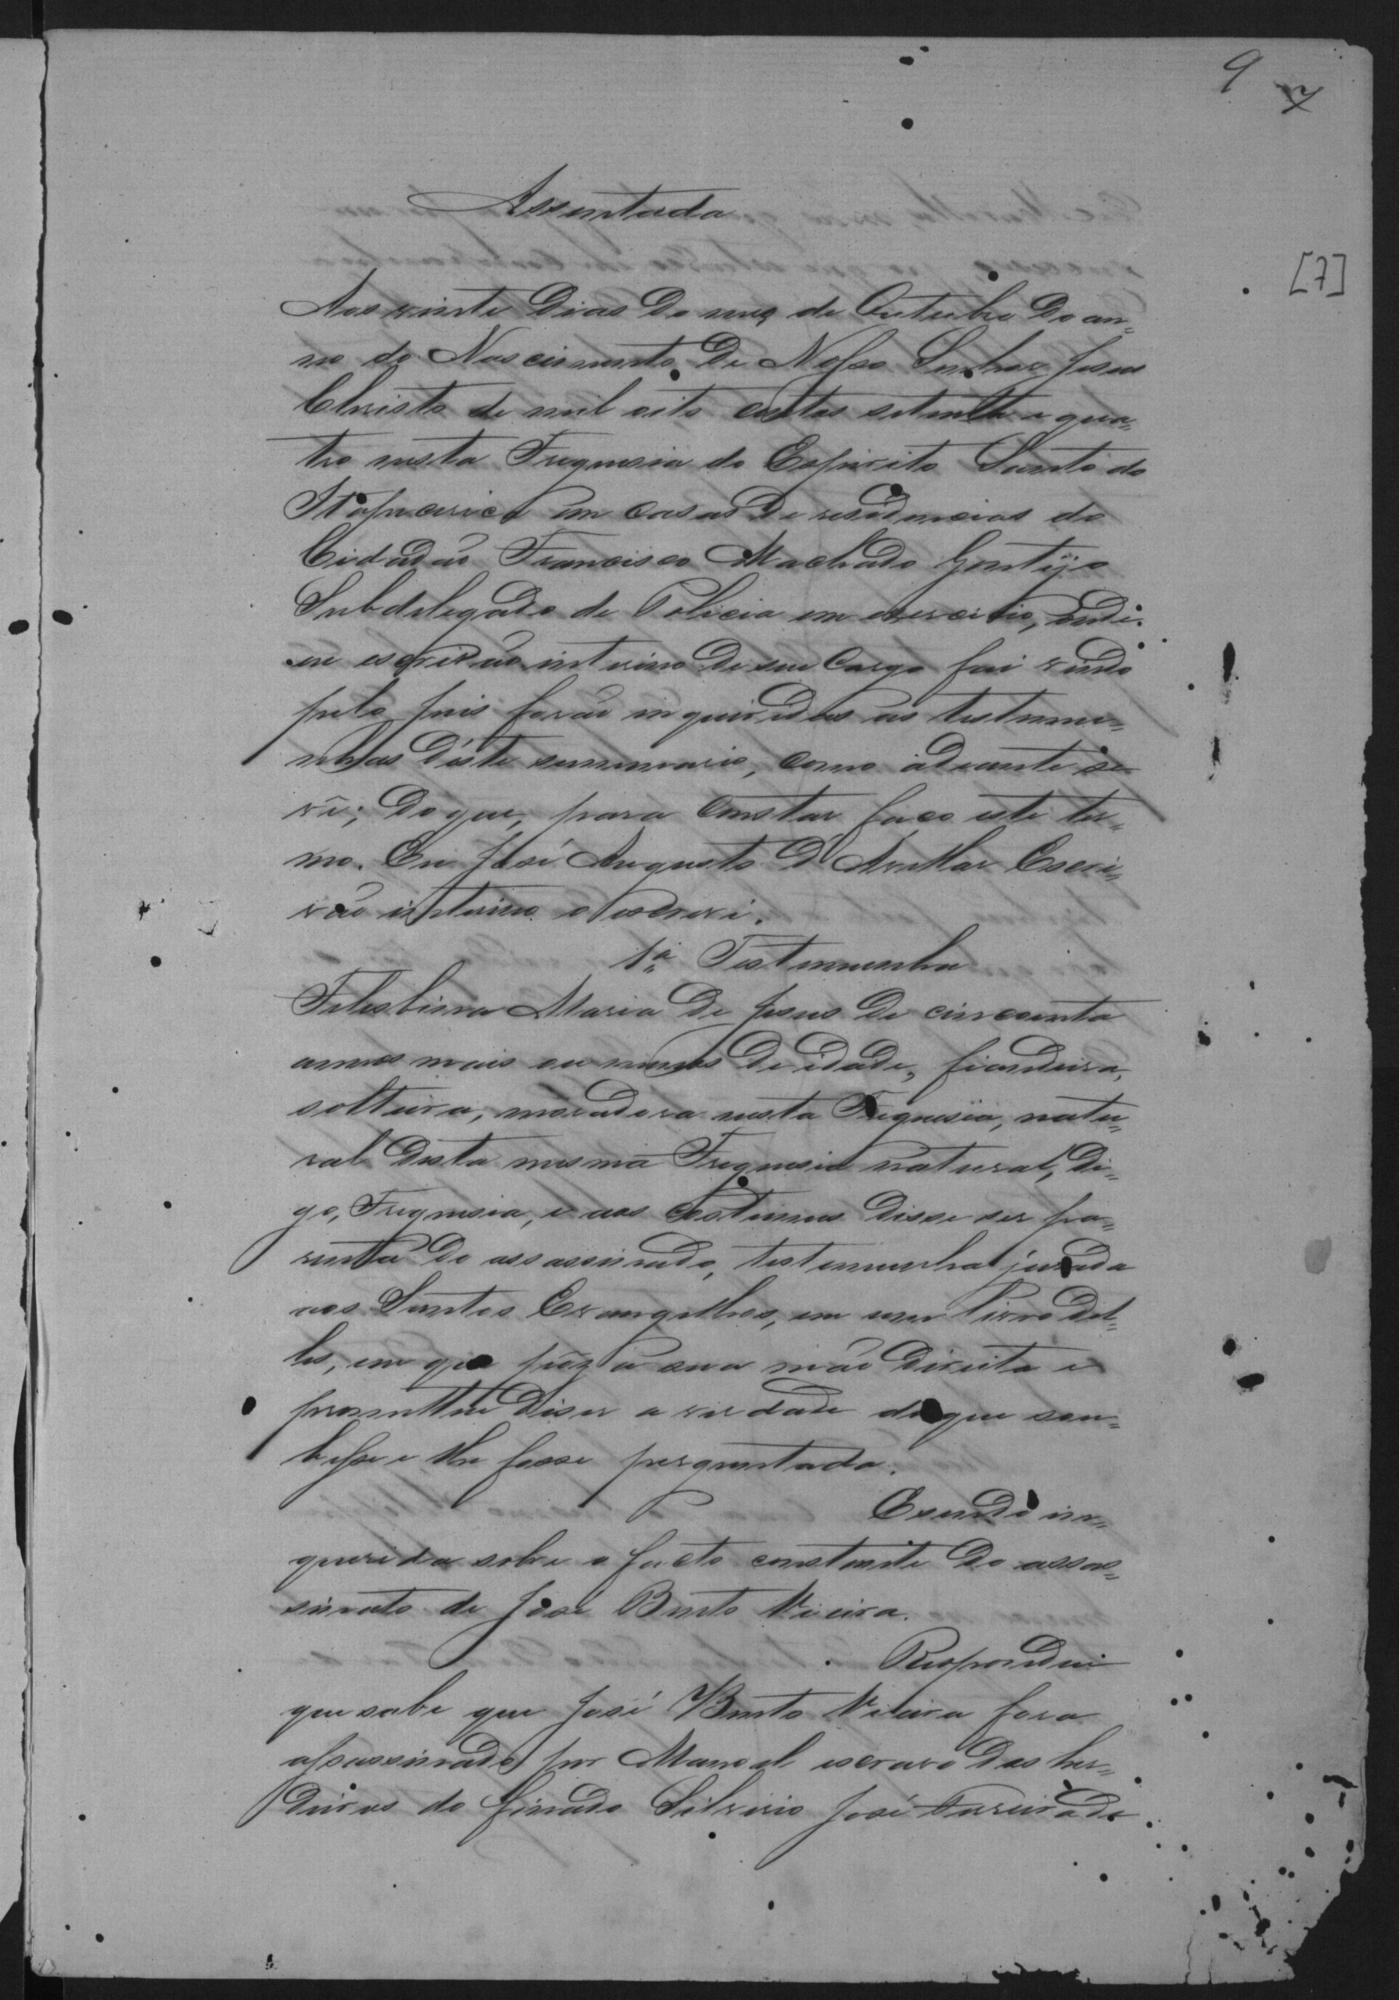 9 7
[7]
Assentada
Aos vinte dias do mez de Outubro do an=
no do Nascimento de Nosso Senhor Jesus
Christo de mil oito centos setenta e qua=
tro nesta Freguesia do Espirito Santo do
Itapecerica em casas de residencias do
Cidadão Francisco Machado Gontijo
Subdelegado de Policia em exercicio, onde
eu escrivão interino de seu Cargo fui vindo
pelo juis forão inqueridas as testimu=
nhas d'este summario, como adeante se
vê; do que, para constar faço este ter=
mo. Eu José Augusto d'Avellar Escri=
vão interino o escrevi.
1ª Testemunha
Felisbina Maria de Jesus de cincoenta
annos mais ou menos de idade, fiandeira,
solteira, moradora nesta Freguesia, natu=
ral desta mesma Freguesia natural, di=
go, Freguesia, e aos costumes disse ser pa=
renta do assassinado, testemunha jurada
aos Santos Evangelhos, em um Livro del=
les, em que pôz a sua mão direita e
prometteu diser a verdade do que sou=
besse e lhe fosse perguntado.
E sendo in=
querida sobre o facto constante do assas=
sinato de José Bento Vieira.
Respondeu
que sabe que José Bento Vieira fora
assassinado por Manoel escravo dos her=
deiros do finado Silverio José Ferreira de